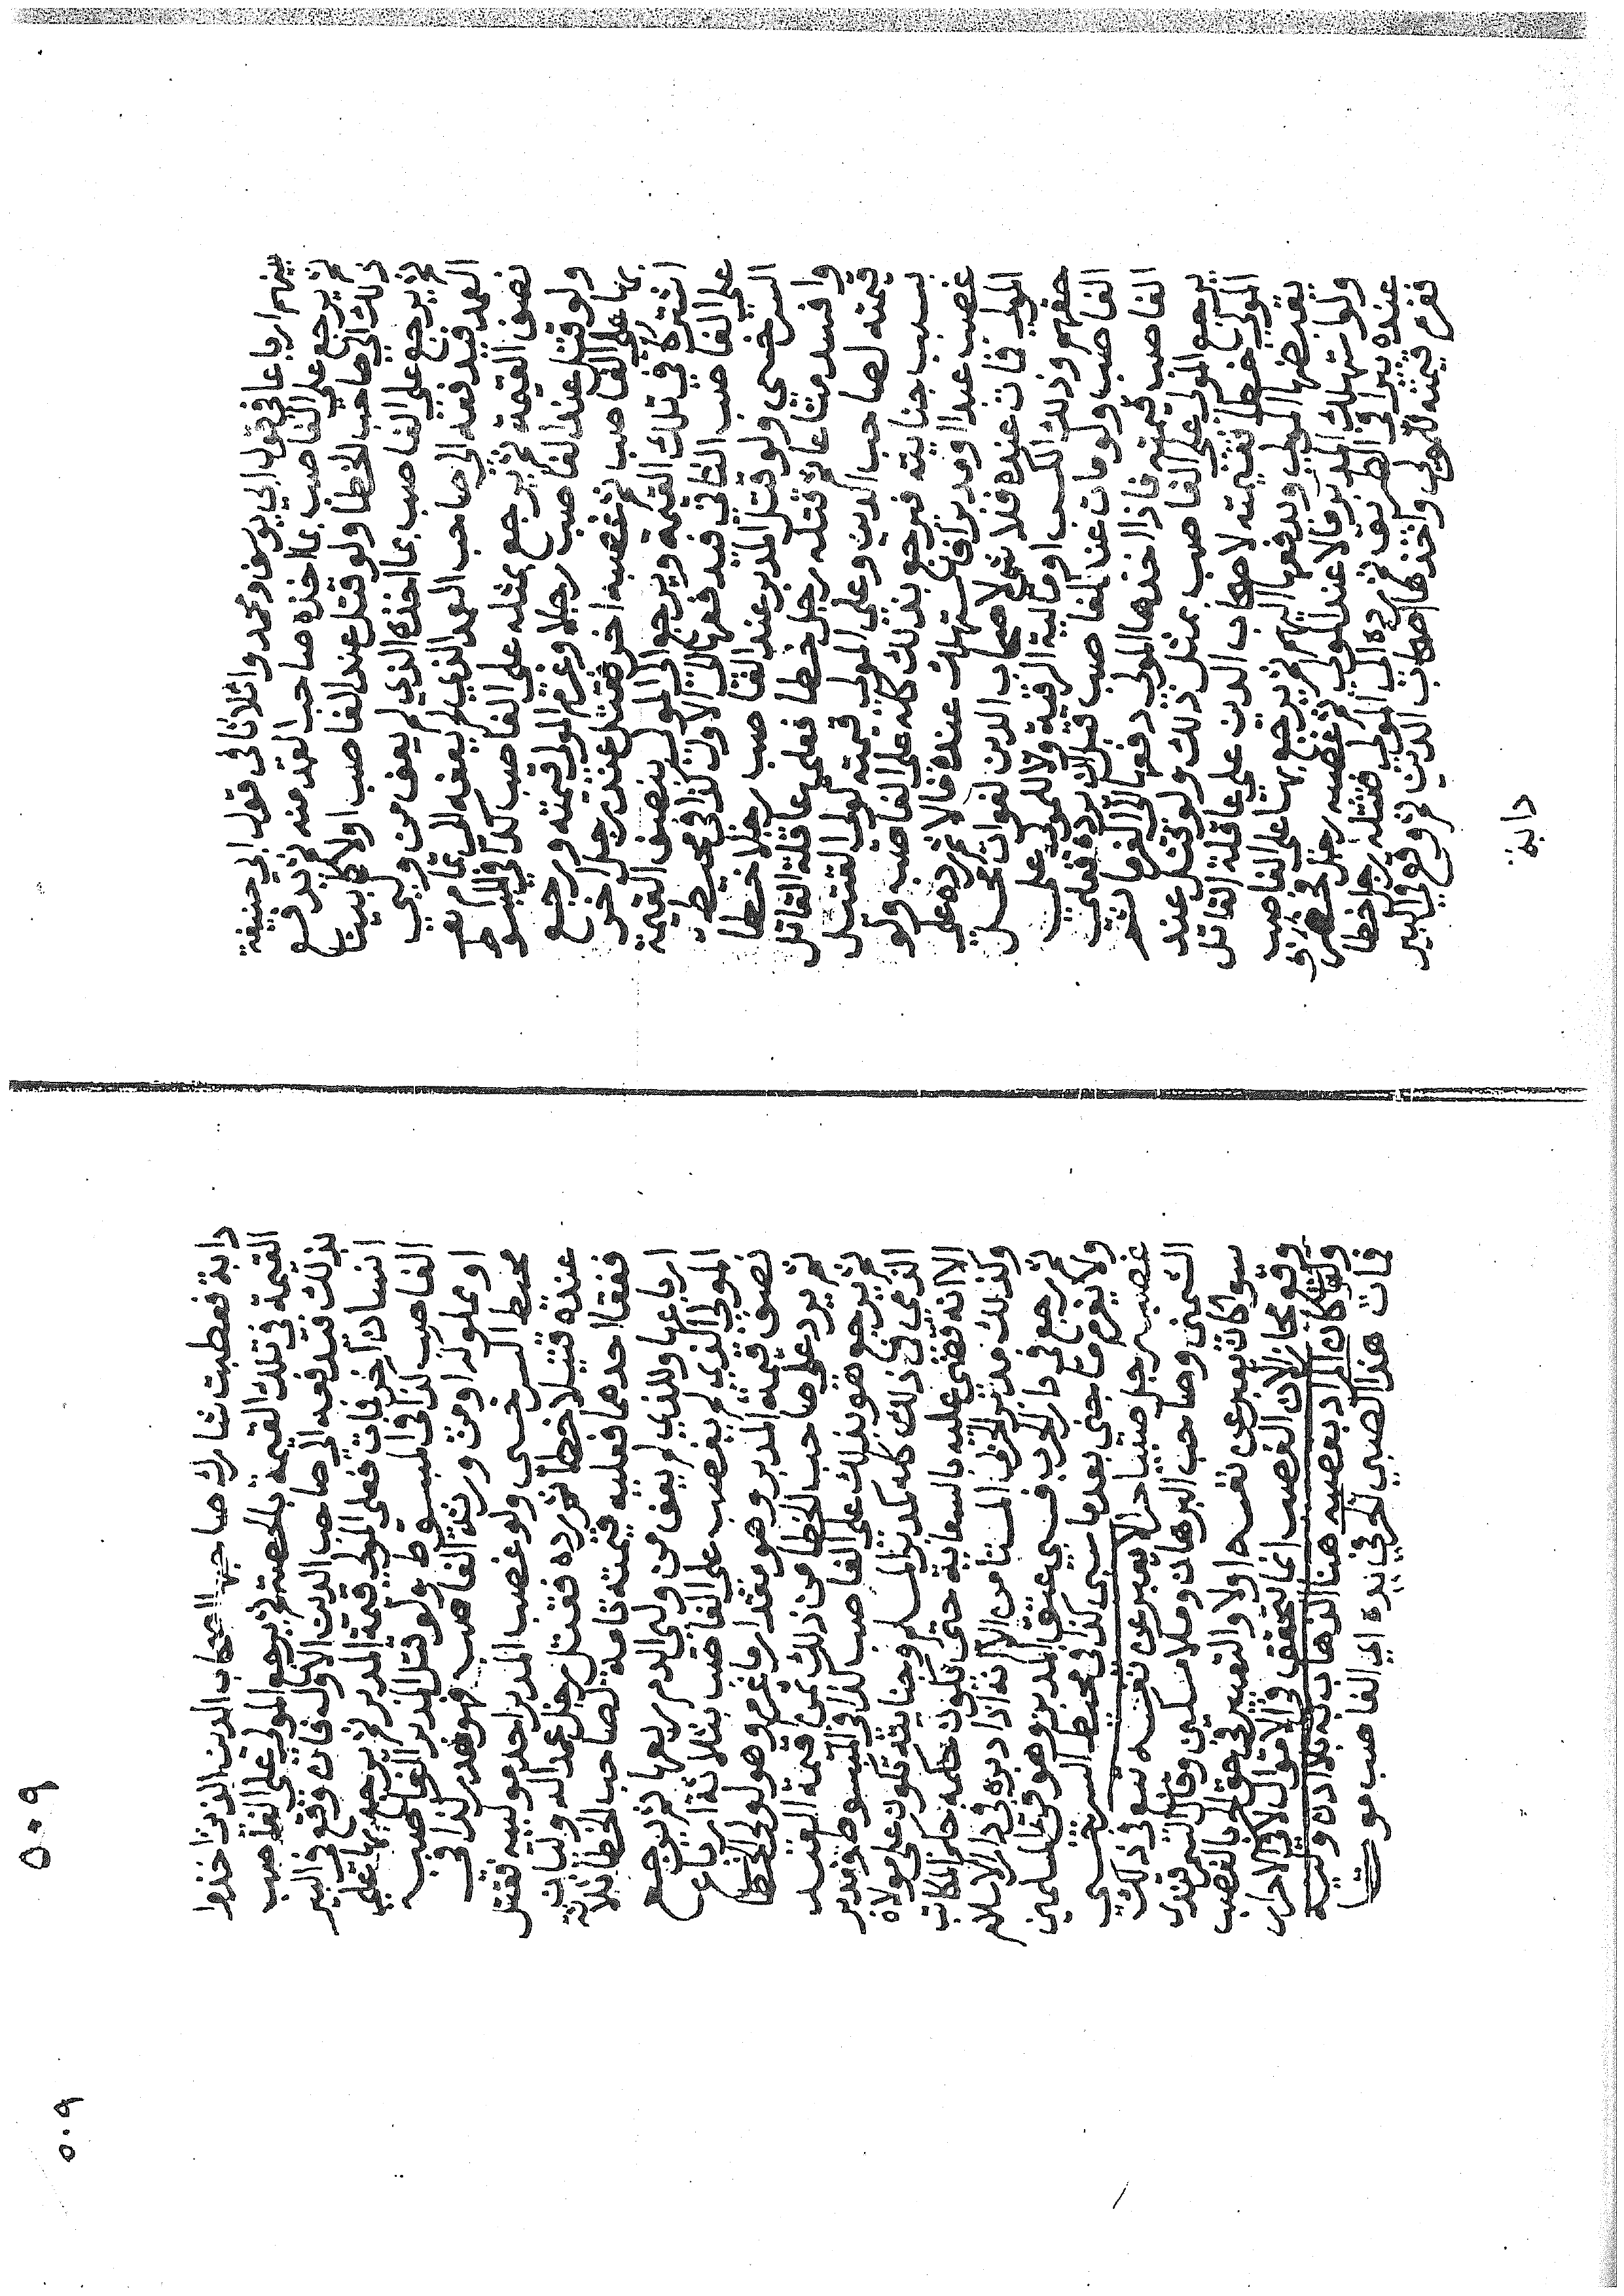 بينهم ارباعا في قول ابي يوسف ومحمد واثلاثا في قول ابي حنيفة
ثم يرجع علي الغاصب بما اخذه صاحب العمد منه ثم يدفع
ذلك الي صاحب الخطا ولو قتل عند الغاصب اولا كما بينا
ثم يرجع علي الغاصب بما اخذه الذي لم يعف من وليي
العمد فيدفعه الي صاحب العمد الذي لم يعف الي تمام
نصف القيمة ثم يرجع بمثله علي الغاصب كذا في المبسوط
ولو قتل عند الغاصب رجلا وغرم المولي قيمته ورجع
بها علي الغاصب ثم غصبه اخر فقتل عنده رجل اخر
اشتركا في تلك القيمة ويرجع المولي بنصف القيمة
علي الغاصب الثاني فيدفعها الي الاول كذا في محيط
السرخسي ولو قتل المدبر عند الغاصب رجلا خطا
وافسد متاعا ثم قتله رجل خطا فعلي عاقلة القاتل
قيمته لصاحب الدين وعلي المولي قيمته لولي القتيل
بسبب جنايته فيرجع بذلك كله علي الغاصب ولو
غصب عبدا او مدبرا فاستهلك عنده مالا ثم رده علي
المولي فمات عنده فلا شي لاصحاب الدين لفوات محل
حقهم وذلك الكسب او مالية الرقبة ولا للمولي علي
الغاصب ولو مات عند الغاصب قبل ان يرده فعلي
الغاصب قيمته فاذا اخذها المولي دفعها الي الغرما ثم
يرجع المولي علي الغاصب بمثل ذلك ولو قتل عند
المولي خطا فقيمته لاصحاب الدين علي عاقلة القاتل
يقبضها المولي ويدفعها اليهم ثم يرجع بها علي الغاصب
ولو استهلك المدبر مالا عند المولي ثم غصبه رجل فحفر
عنده بيرا في الطريق ثم رده الي المولي فقتله رجل خطا
فغرم قيمته للمولي واخذها اصحاب الدين ثم وقع في البير
دابة
دابة فعطبت شارك صاحبها اصحاب الدين الذين اخذوا
القيمة في تلك القيمة بالحصة ثم يرجع المولي علي الغاصب
بذلك فيدفعه الي صاحب الدين الاول فان وقع في البير
انسان اخر فمات فعلي المولي قيمة المدبر ثم يرجع بها علي
الغاصب كذا في المبسوط ولو قتل المدبر الغاصب
او مملوكه او من ورثه الغاصب فهو هدر كذا في
محيط السرخسي ولو غصب المدبر احد مولييه فقتل
عنده قتيلا خطا ثم رده فقتل رجل عمدا له وليان
فعفا احدهما فعليه قيمته تامة لصاحب الخطا ثلاثة
ارباعها وللذي لم يعف من وليي الدم ربعها ثم يرجع
المولي الذي لم يغصب علي الغاصب بثلاثة ارباع
نصف قيمة المدبر وهو مقدار ما غرم وهو لولي الخطا
ثم يرد علي صاحب الخطا من ذلك ثمن قيمة العبد
ثم يرجع هو بذلك علي الغاصب كذا في المبسوط ومدبر
الذمي في ذلك كله كمدبر المسلم وجنايته تكون علي مولاه
الا انه قضي عليه بالسعاية حتي تكون حكمه حكم المكاتب
وكذلك مدبر الحربي المستامن الا انه اذا دبره في دار الاسلام
ثم رجع في دار الحرب فسبي عتق المدبر وهو في المسلمين
ولا يغرم ما جني بعد ما سبي كذا في محيط السرخسي
غصب رجل صبيا حرا لا يعبر عن نفسه تبع في ذلك
الشمني وصاحب البرهان وملا مسكين وقال السمرقندي
سوا كان يعبر عن نفسه اولا والتعبير في حق الحر بالغصب
وقع مجازا لان الغصب انما يتحقق في الاموال لا في الاحرار
ولو كان المراد بغصبه هنا الذهاب به بلا اذن وليه
فمات هذا الصبي الحر في يده اي الغاصب موتا
٥٠٩
٥٠٩